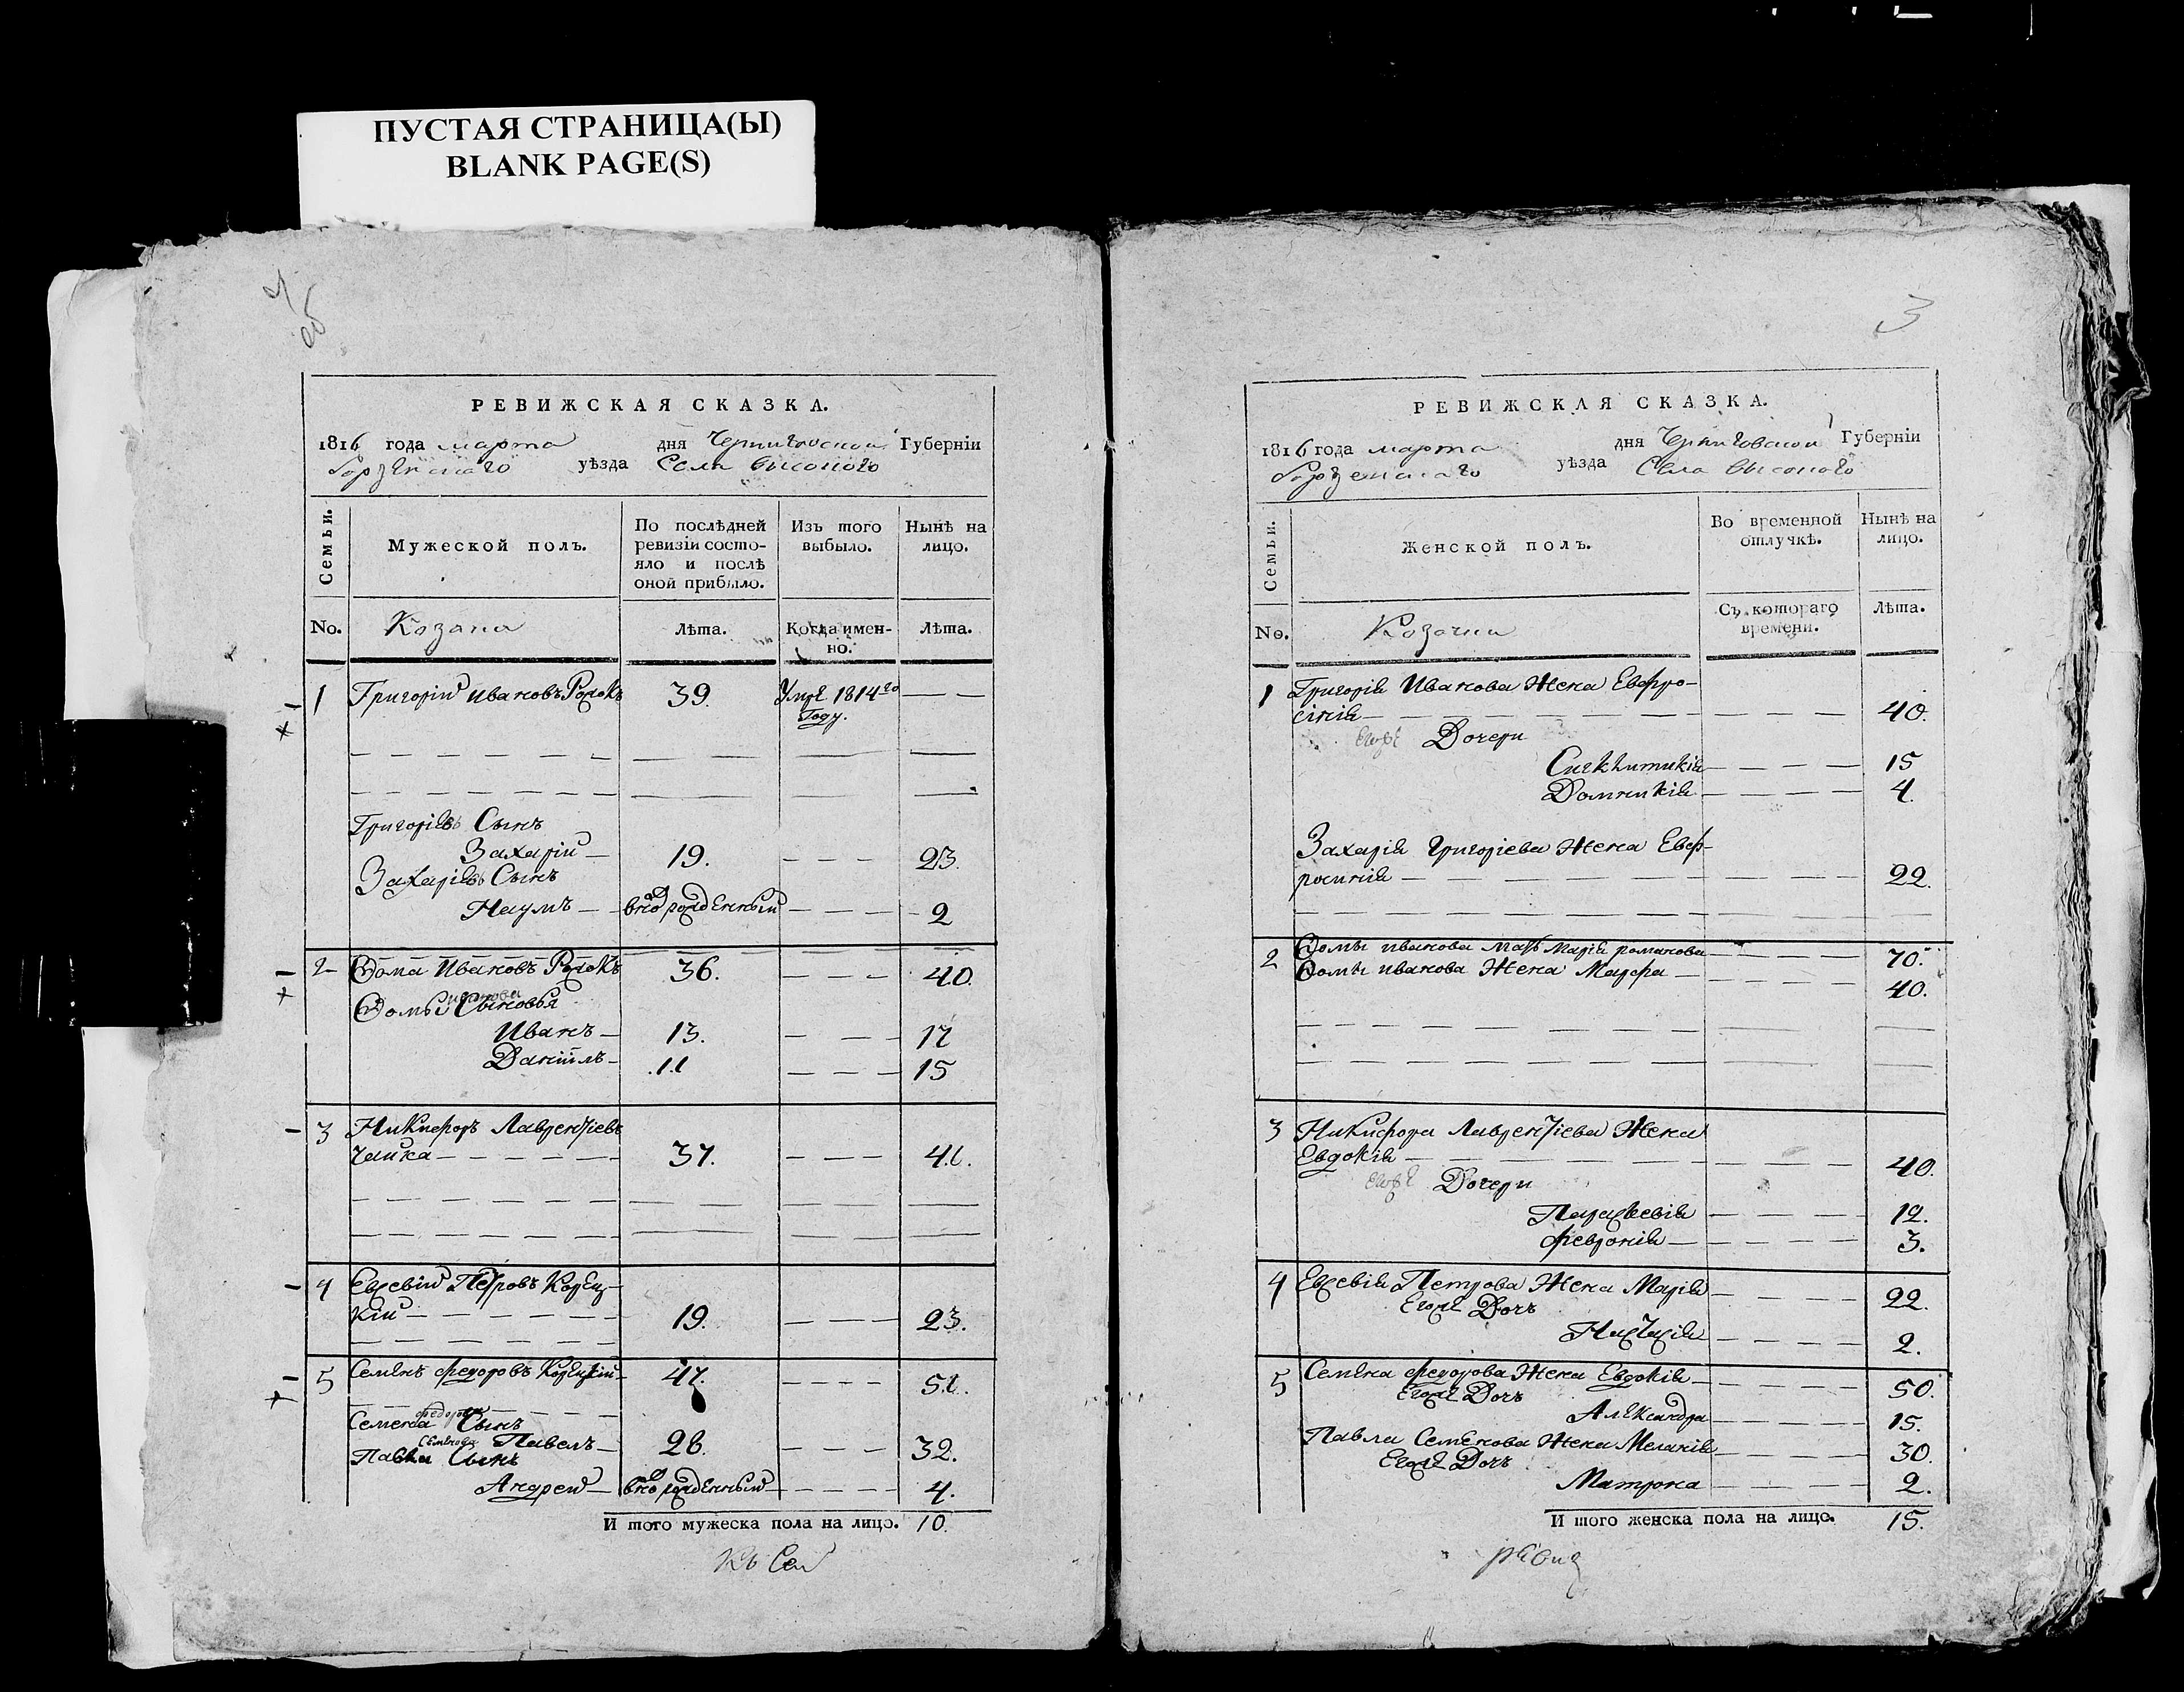 ПУСТАЯ СТРАНИЦА(Ы)
BLANK PAGE(S)
РЕВИЖСКАЯ СКАЗКА.
1816 года марта дня Черниговской Губерніи
уѣзда Села Высокого
Семьи.
Мужеской полъ.
По послѣдней ревизіи состо-
яло и послѣ оной прибыло.
Изъ того выбыло.
Нынѣ на лицо.
No.
Козаки
Лѣта.
Когда имен-
но.
Лѣта.
1 Григорій Ивановъ 39. Умре 1814го — —
Году.
Григоріевъ Сынъ
Захарій — 19. — — — 23.
Захаріевъ Сынъ
Наумъ — вно рожденный — — — 2
2 Ѳома Ивановъ 36. — — — 40.
Ѳомы Иванова Сыновья
Иванъ — 13. — — 17
Даніилъ — 11 — — — 15
3 Никифоръ Лаврентіевъ
Чайка — — — 37. — — — 41.
4 Евсевій Петровъ Корец-
кій — — — 19. — — — 23.
5 Семенъ Федоровъ Корецкій — 47. — — — 51.
Семена Федорова Сынъ
Павелъ — 28. — — — 32.
Павла Семенова Сынъ
Андрей — вно рожденный — — — 4.
И того мужеска пола на лицо. 10.
3
РЕВИЖСКАЯ СКАЗКА.
1816 года марта дня Черниговской Губерніи
уѣзда Села Высокого
Семьи.
Женской полъ.
Во временной отлучкѣ.
Нынѣ на лицо.
No.
Козачки
Съ котораго времени.
Лѣта.
1 Григорія Иванова Жена Евфро-
синія — — — 40.
Его же Дочери
Синклитикія — — — 15
Домникія — — — 4.
Захарія Григоріева Жена Евф-
росинія — — — 22.
2 Ѳомы Иванова мать Марія Романова — — — 70.
Ѳомы Иванова Жена Марфа — — — 40.
3 Никифора Лаврентіева Жена
Евдокія — — — 40.
Его же Дочери
Параскевія — — — 12.
Февронія — — — 3.
4 Евсевія Петрова Жена Марія — — — 22.
Его же Дочь
Настасія — — — 2.
5 Семена Федорова Жена Евдокія — — — 50.
Его же Дочь
Александра — — — 15.
Павла Семенова Жена Меланія — — — 30.
Его же Дочь
Матрона — — — 2.
И того женска пола на лицо. 15.